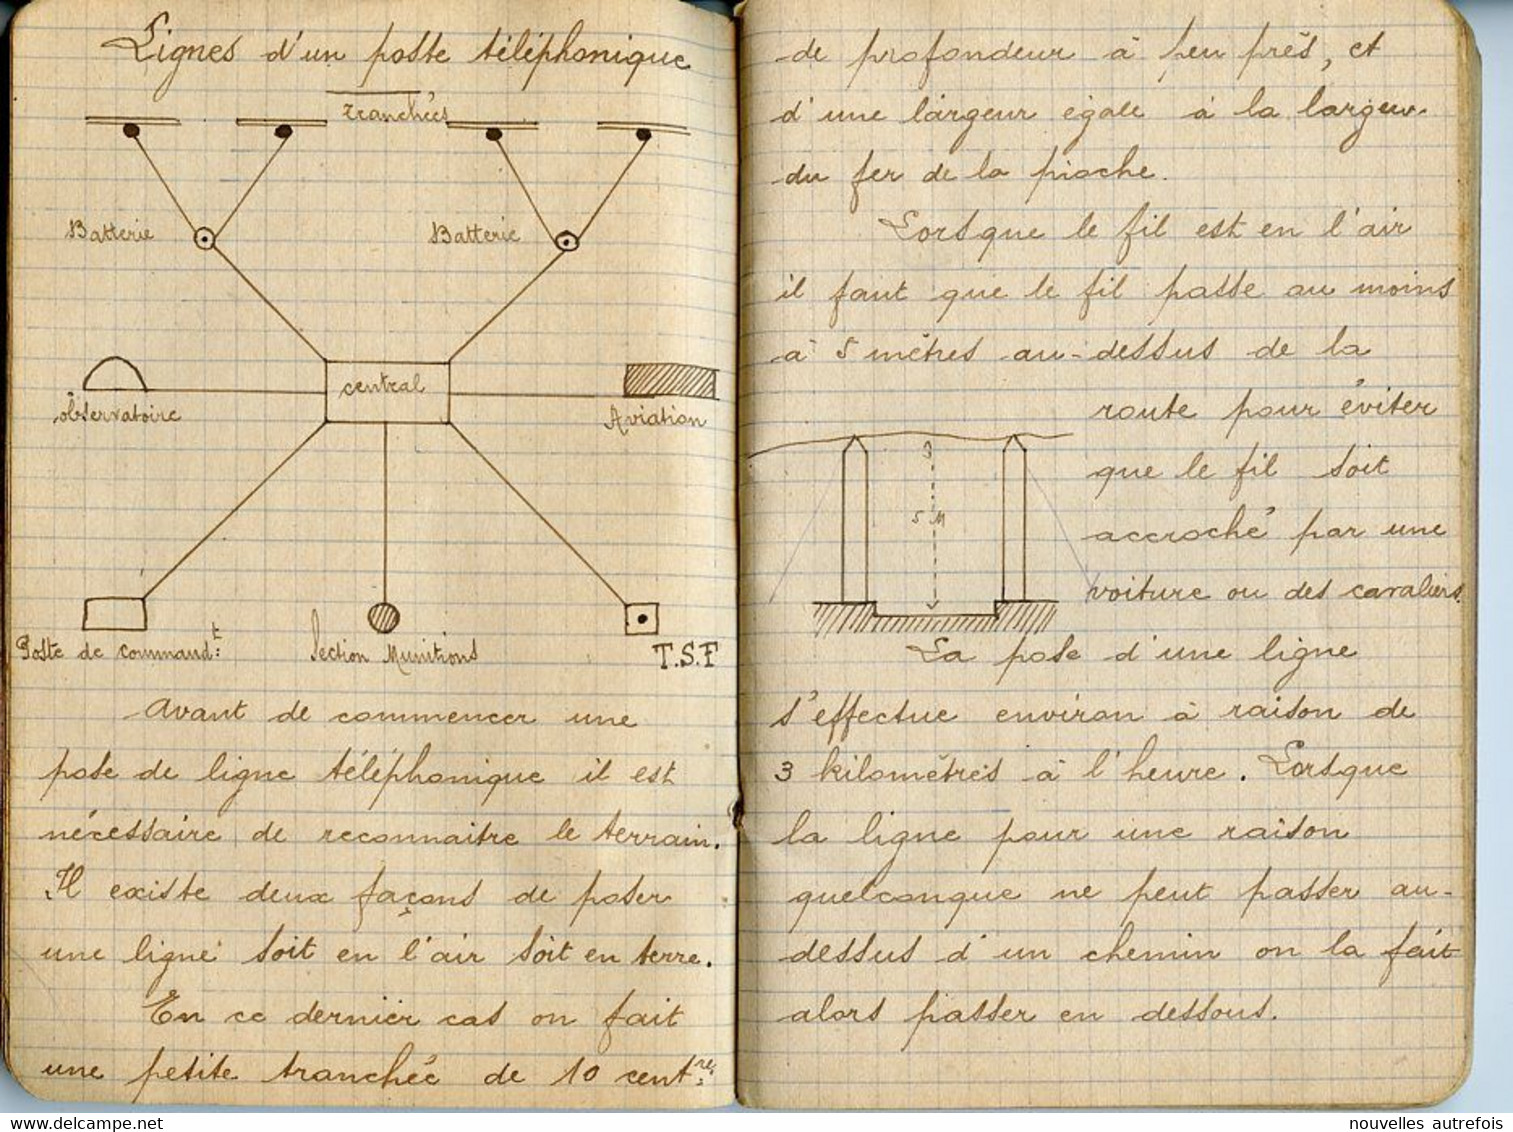 Lignes d'un poste téléphonique
Tranchées
Batterie
Batterie
central
observatoire
Aviation
Poste de command:t
Section Munitions
T.S.F
Avant de commencer une
pose de ligne téléphonique il est
nécessaire de reconnaitre le terrain.
Il existe deux façons de poser
une ligne soit en l'air soit en terre.
En ce dernier cas on fait
une petite tranchée de 10 centres
de profondeur à peu près, et
d'une largeur egale à la largeur
du fer de la pioche.
Lorsque le fil est en l'air
il faut que le fil passe au moins
à 5 mètres au-dessus de la
route pour éviter
que le fil soit
accroché par une
voiture ou des cavaliers.
5 M
La pose d'une ligne
s'effectue environ à raison de
3 kilomètres à l'heure. Lorsque
la ligne pour une raison
quelconque ne peut passer au-
dessus d'un chemin on la fait
alors passer en dessous.
delcampe.net
nouvelles autrefois